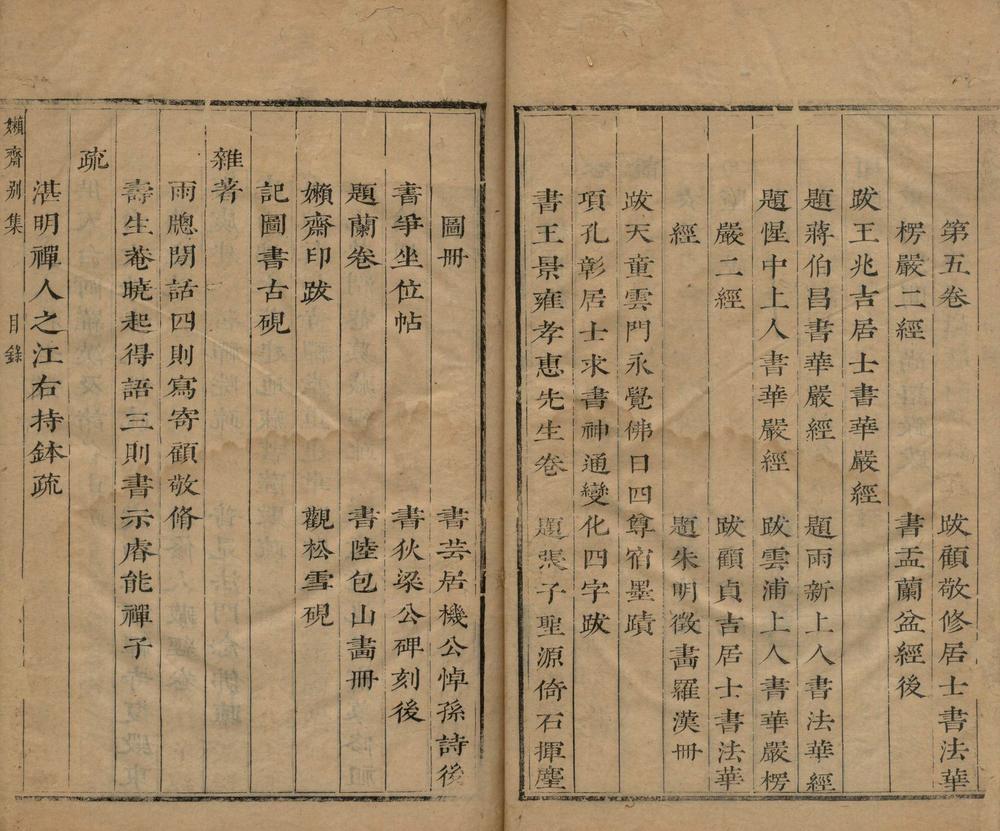 第五卷 跋顧敬修居士書法華
楞嚴二經 書盂蘭盆經後
跋王兆吉居士書華嚴經
題蔣伯昌書華嚴經 題雨新上人書法華經
題惺中上人書華嚴經 跋雲浦上人書華嚴楞
嚴二經 跋顧貞吉居士書法華
經 題朱明徵畵羅漢冊
跋天童雲門永覺佛日四尊宿墨蹟
項孔彰居士求書神通變化四字跋
書王景雍孝惠先生卷 題張子聖源倚石揮麈
圖冊 書芸居機公悼孫詩後
書爭坐位帖 書狄梁公碑刻後
題蘭卷 書陸包山畵冊
嬾齋印跋 觀松雪硯
記圖書古硯
雜著
雨牕閒話四則寫寄顧敬脩
壽生菴曉起得語三則書示睿能禪子
疏
湛明禪人之江右持鉢疏
嬾齋别集 目錄